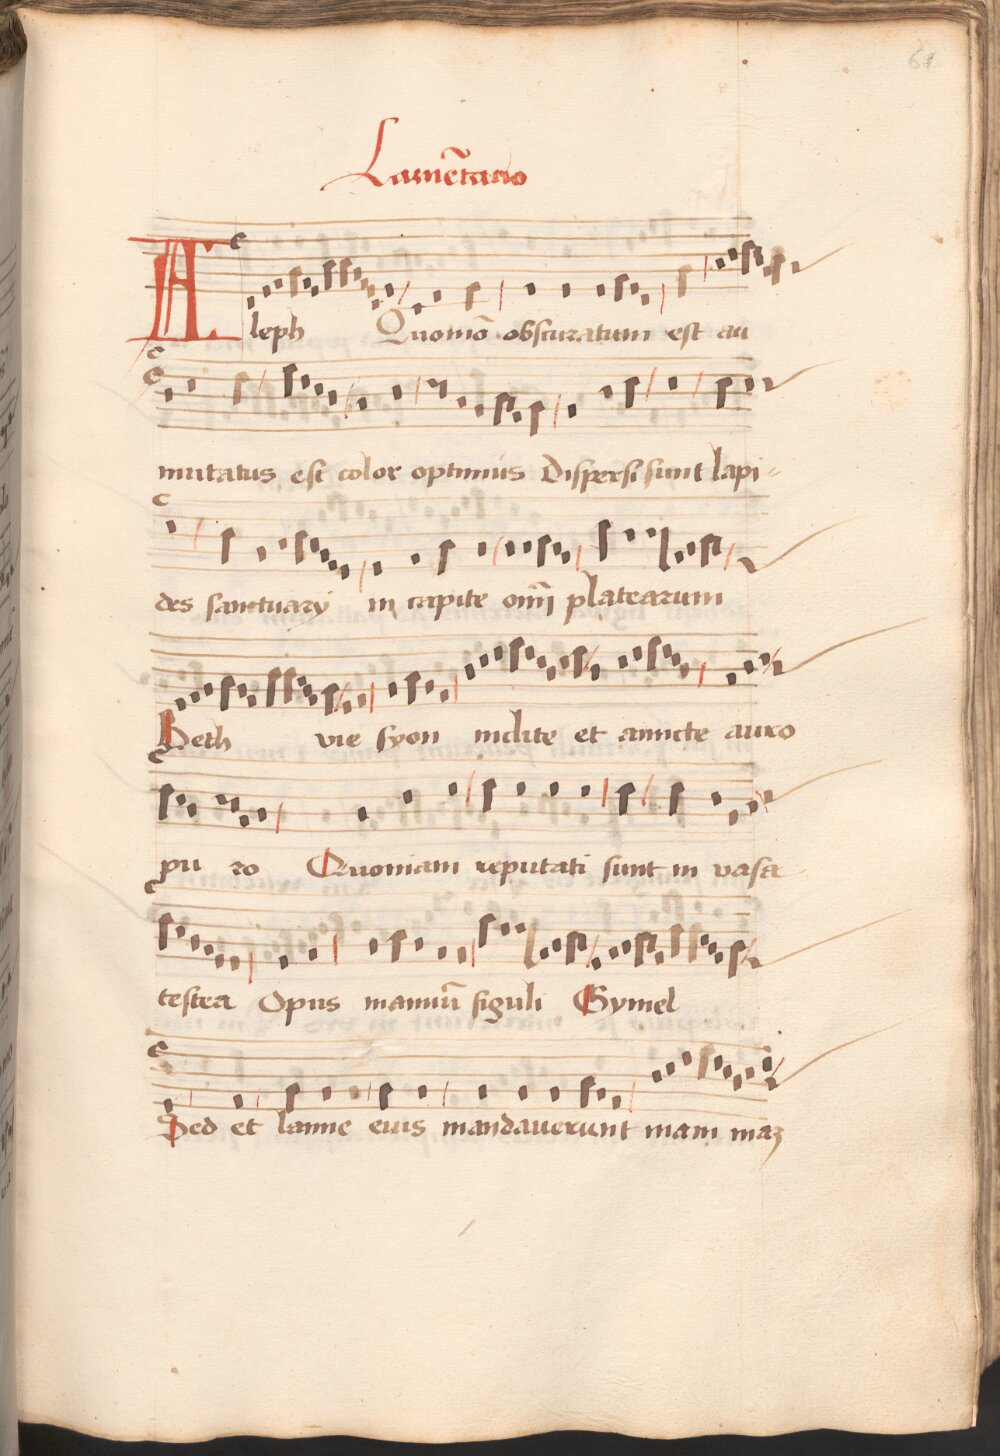 61
Lamētacio
Aleph Quomō obscuratum est au
mutatus est color optimus Dispersi sunt lapi-
des sanctuarÿ in capite om̄ī platearum
Beth vie syon inclite et amicte auro
pu ro Quoniam reputati sunt in vasa
testea Opus manuū figuli Gymel
Sed et lamie euis mandauerunt mam maꝫ